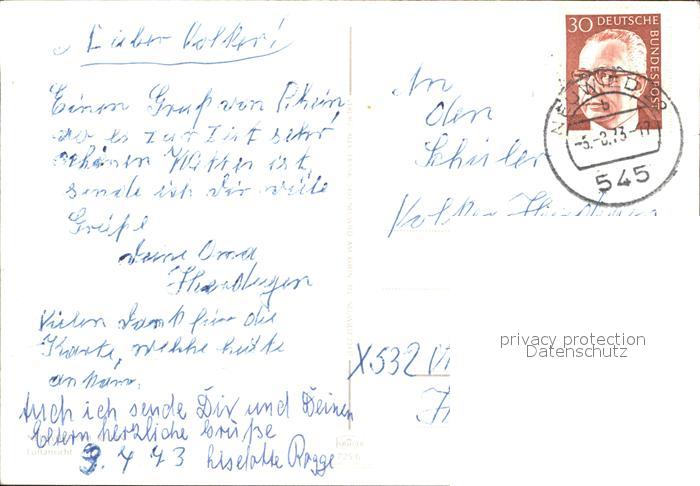 Lieber Volker!
Einen Gruß von Rhein
wo es zur Zeit sehr
schönes Wetter ist,
sende ich dir viele
Grüße
Deine Oma
Vielen Dank für die
Karte, welche heute
ankam.
Auch ich sende Dir und Deinen
Eltern herzliche Grüße
Liselotte Rogge
Luftansicht
An
den
Schüler
Volker
X532
30 DEUTSCHE
BUNDESPOST
NEUWIED
b
-3.-8.73-17
545
privacy protection
Datenschutz